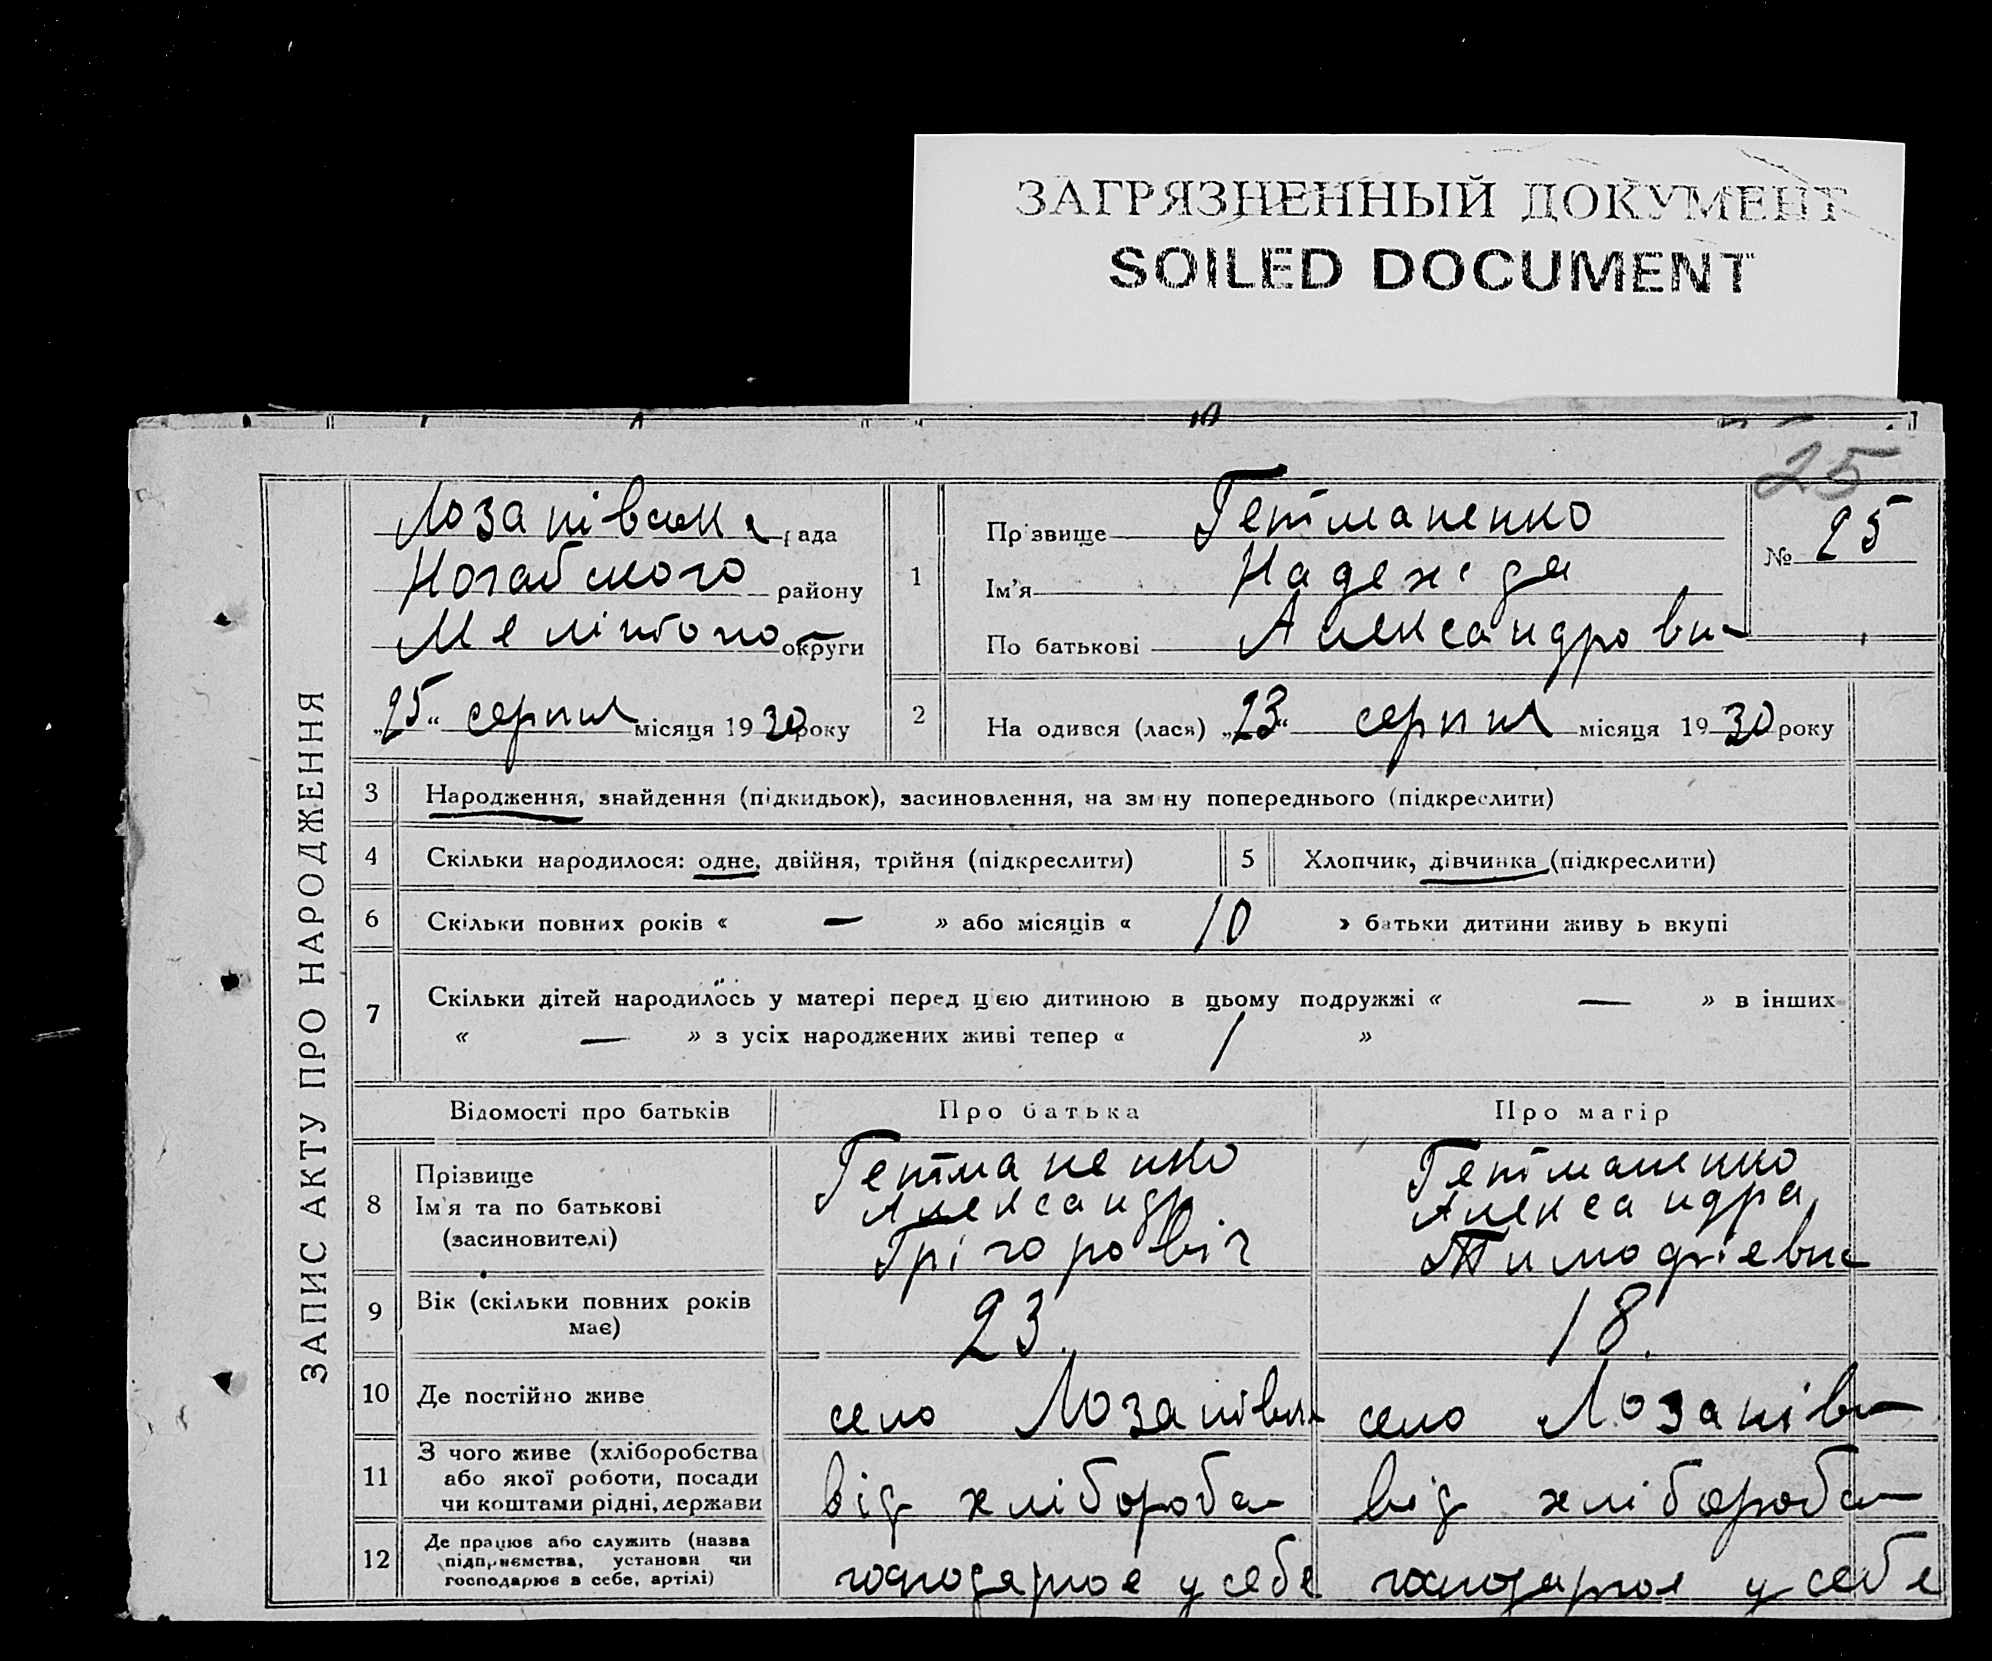 ЗАГРЯЗНЕННЫЙ ДОКУМЕНТ
SOILED DOCUMENT
25
ЗАПИС АКТУ ПРО НАРОДЖЕННЯ
Лозанівська рада
Ногабского району
Меліtопо округи
„25“ серпня місяця 1930 року
1
Прізвище Гетманенко
Ім'я Надежда
По батькові Александровн
№ 25
2 На одився (лася) „23“ серпня місяця 1930 року
3 Народження, знайдення (підкидьок), засиновлення, на зм ну попереднього (підкреслити)
4 Скільки народилося: одне, двійня, трійня (підкреслити)
5 Хлопчик, дівчинка (підкреслити)
6 Скільки повних років « — » або місяців « 10 » батьки дитини живу ь вкупі
7 Скільки дітей народилось у матері перед цією дитиною в цьому подружжі « — » в інших
« — » з усіх народжених живі тепер « 1 »
Відомості про батьків Про батька Про матір
8 Прізвище
Ім'я та по батькові
(засиновителі)
Гетманенко
Александр
Грігоровіч
Гетманенко
Александра
Тимофіевн
9 Вік (скільки повних років
має)
23.
18.
10 Де постійно живе село Лозанівк село Лозанівк
11 З чого живе (хліборобства
або якої роботи, посади
чи коштами рідні, держави
від хлібороба від хлібороба
12 Де працює або служить (назва
підприємства, установи чи
господарює в себе, артілі)
господарює у себе господарює у себе